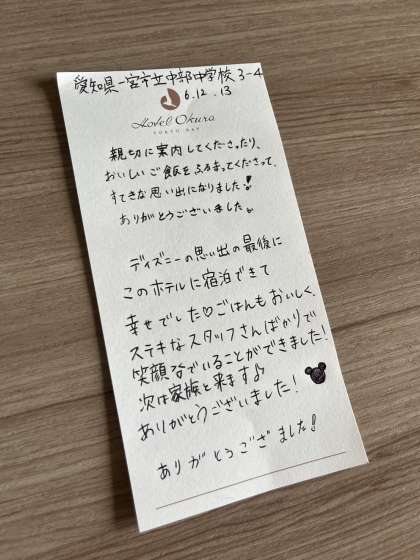 愛知県一宮市立中部中学校 3-4
6.12.13
Hotel Okura
TOKYO BAY
親切に案内してくださったり、
おいしいご飯をふるまってくださって、
すてきな思い出になりました!
ありがとうございました。
ディズニーの思い出の最後に
このホテルに宿泊できて
幸せでした♡ごはんもおいしく、
ステキなスタッフさんばかりで
笑顔でいることができました!
次は家族と来ます♪
ありがとうございました!
ありがとうござました!